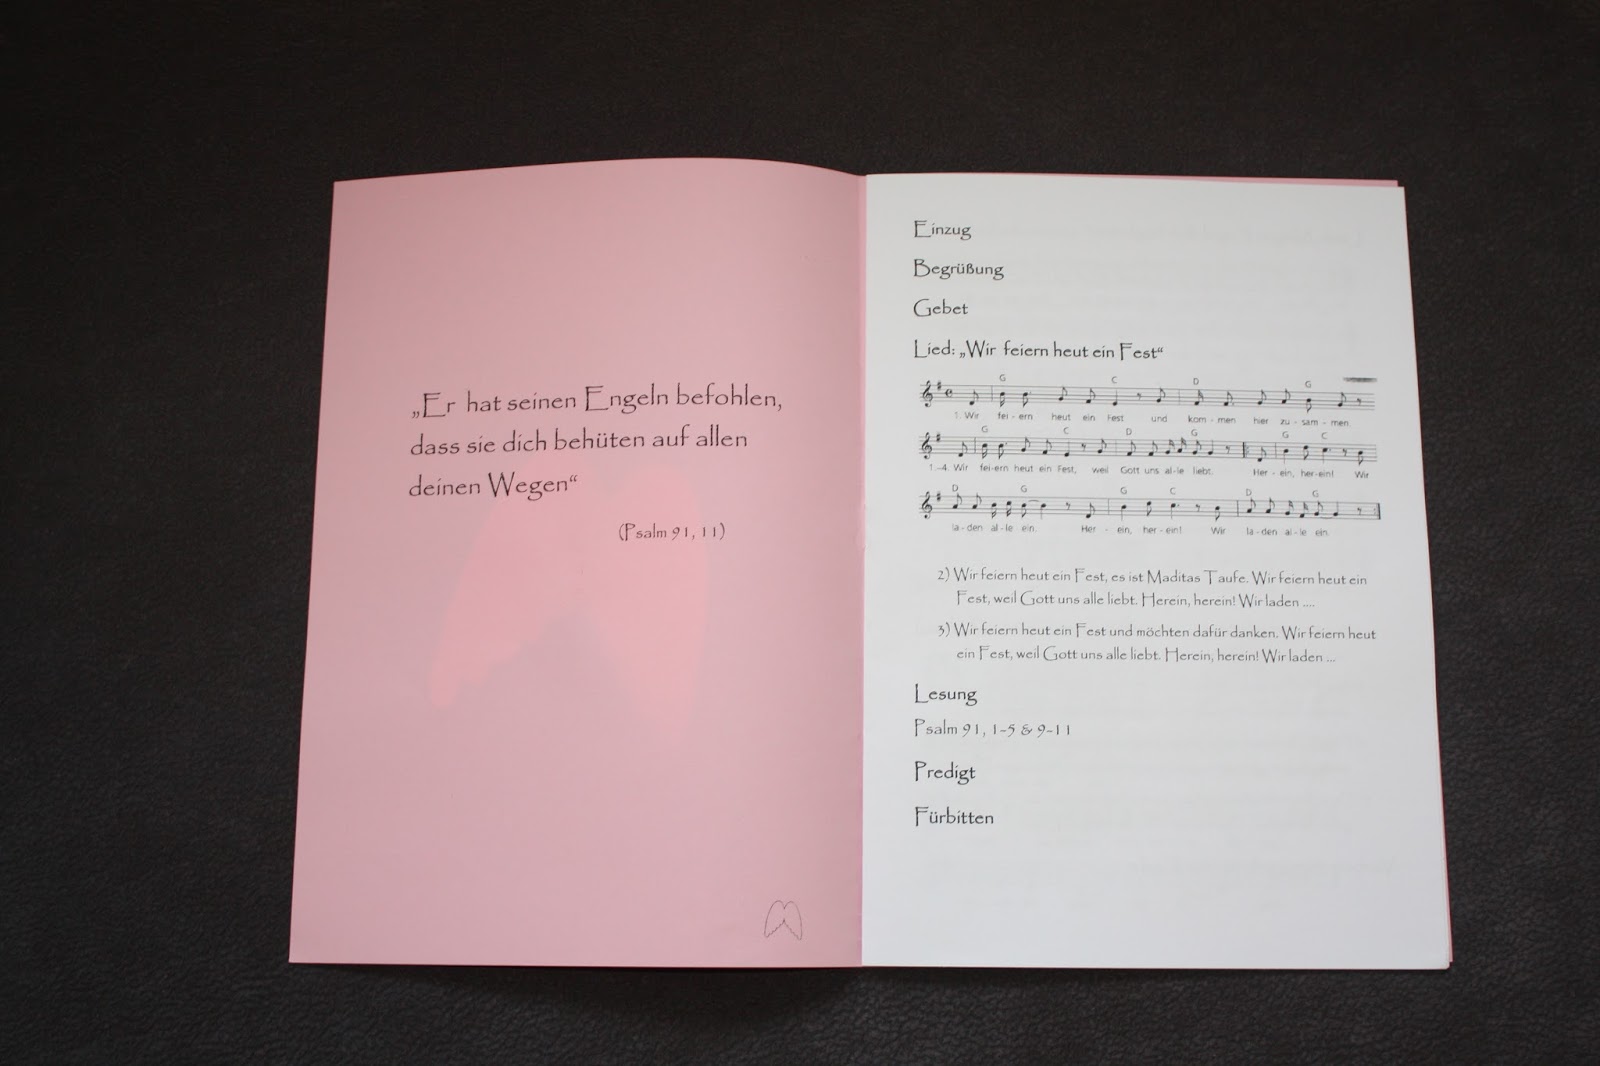 „Er hat seinen Engeln befohlen,
dass sie dich behüten auf allen
deinen Wegen“
(Psalm 91, 11)
Einzug
Begrüßung
Gebet
Lied: „Wir feiern heut ein Fest“
G C D G
1. Wir fei - ern heut ein Fest und kom - men hier zu - sam - men.
G C D G G C
1.-4. Wir fei-ern heut ein Fest, weil Gott uns al-le liebt. Her - ein, her-ein! Wir
D G G C D G
la - den al - le ein. Her - ein, her - ein! Wir la - den al - le ein.
2) Wir feiern heut ein Fest, es ist Maditas Taufe. Wir feiern heut ein
Fest, weil Gott uns alle liebt. Herein, herein! Wir laden ....
3) Wir feiern heut ein Fest und möchten dafür danken. Wir feiern heut
ein Fest, weil Gott uns alle liebt. Herein, herein! Wir laden ...
Lesung
Psalm 91, 1-5 & 9-11
Predigt
Fürbitten